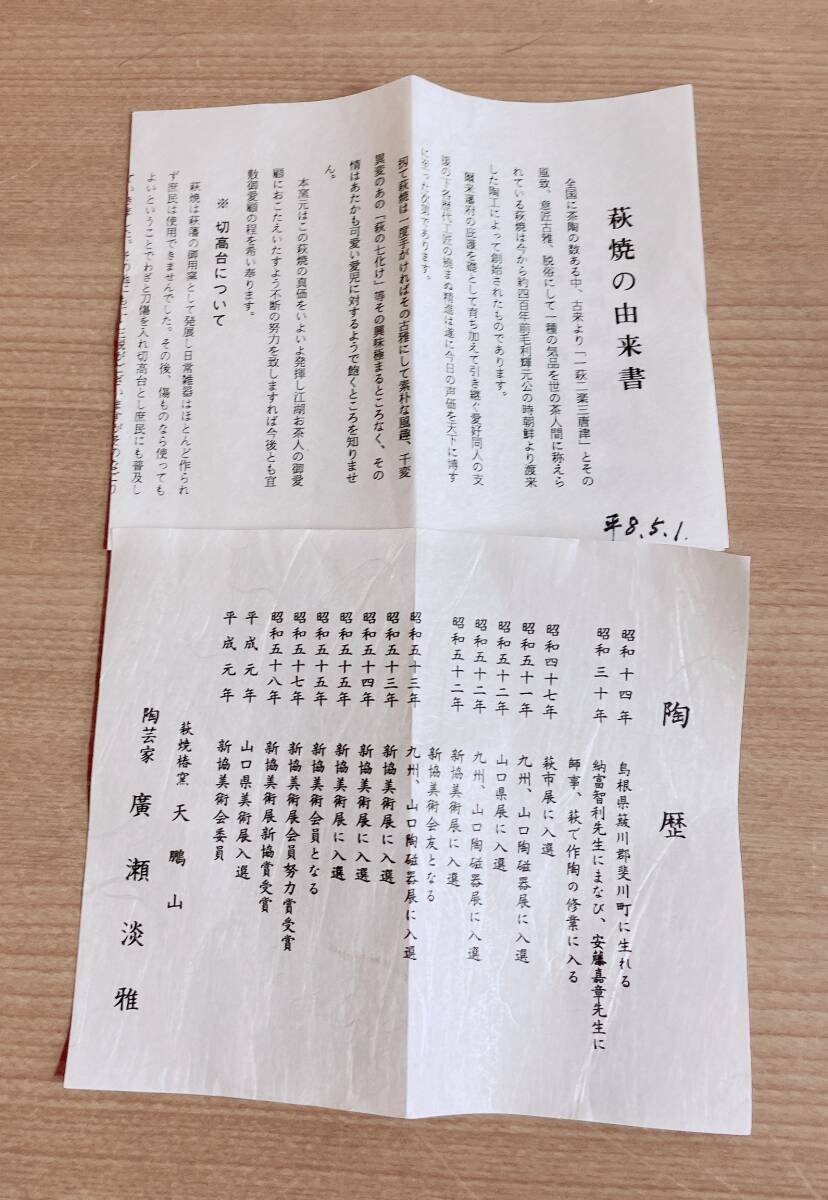 萩焼の由来書
全国に茶陶の数ある中、古来より「一萩二楽三唐津」とその
風致、意匠古雅、脱俗にして一種の気品を世の茶人間に称えら
れている萩焼は今から約四百年前毛利輝元公の時朝鮮より渡来
した陶工によって創始されたものであります。
爾来藩府の庇護を礎として育ち加えて引き継ぐ愛好同人の支
援の下名歴代工匠の撓まぬ精進は遂に今日の声価を天下に博す
に至った次第であります。
扨て萩焼は一度手がければその古雅にして素朴な風趣、千変
異変のあの「萩の七化け」等その興味極まるところなく、その
情はあたかも可愛い愛児に対するようで飽くところを知りませ
ん。
本窯元はこの萩焼の真価をいよいよ発揮し江湖お茶人の御愛
顧におこたえいたすよう不断の努力を致しますれば今後とも宜
敷御愛顧の程を希い奉ります。
※ 切高台について
萩焼は萩藩の御用窯として発展し日常雑器はほとんど作られ
ず庶民は使用できませんでした。その後、傷ものなら使っても
よいということでわざと刀傷を入れ切高台とし庶民にも普及し
平8.5.1.
陶歴
昭和十四年 島根県簸川郡斐川町に生れる
昭和三十年 納富智利先生にまなび、安藤嘉章先生に
師事、萩で作陶の修業に入る
昭和四十七年 萩市展に入選
昭和五十一年 九州、山口陶磁器展に入選
昭和五十二年 山口県展に入選
昭和五十二年 九州、山口陶磁器展に入選
昭和五十二年 新協美術展に入選
新協美術会友となる
昭和五十三年 九州、山口陶磁器展に入選
昭和五十三年 新協美術展に入選
昭和五十四年 新協美術展に入選
昭和五十五年 新協美術展に入選
昭和五十五年 新協美術会員となる
昭和五十七年 新協美術展会員努力賞受賞
昭和五十八年 新協美術展新協賞受賞
平成元年 山口県美術展入選
平成元年 新協美術会委員
萩焼椿窯 天鵬山
陶芸家 廣瀬淡雅